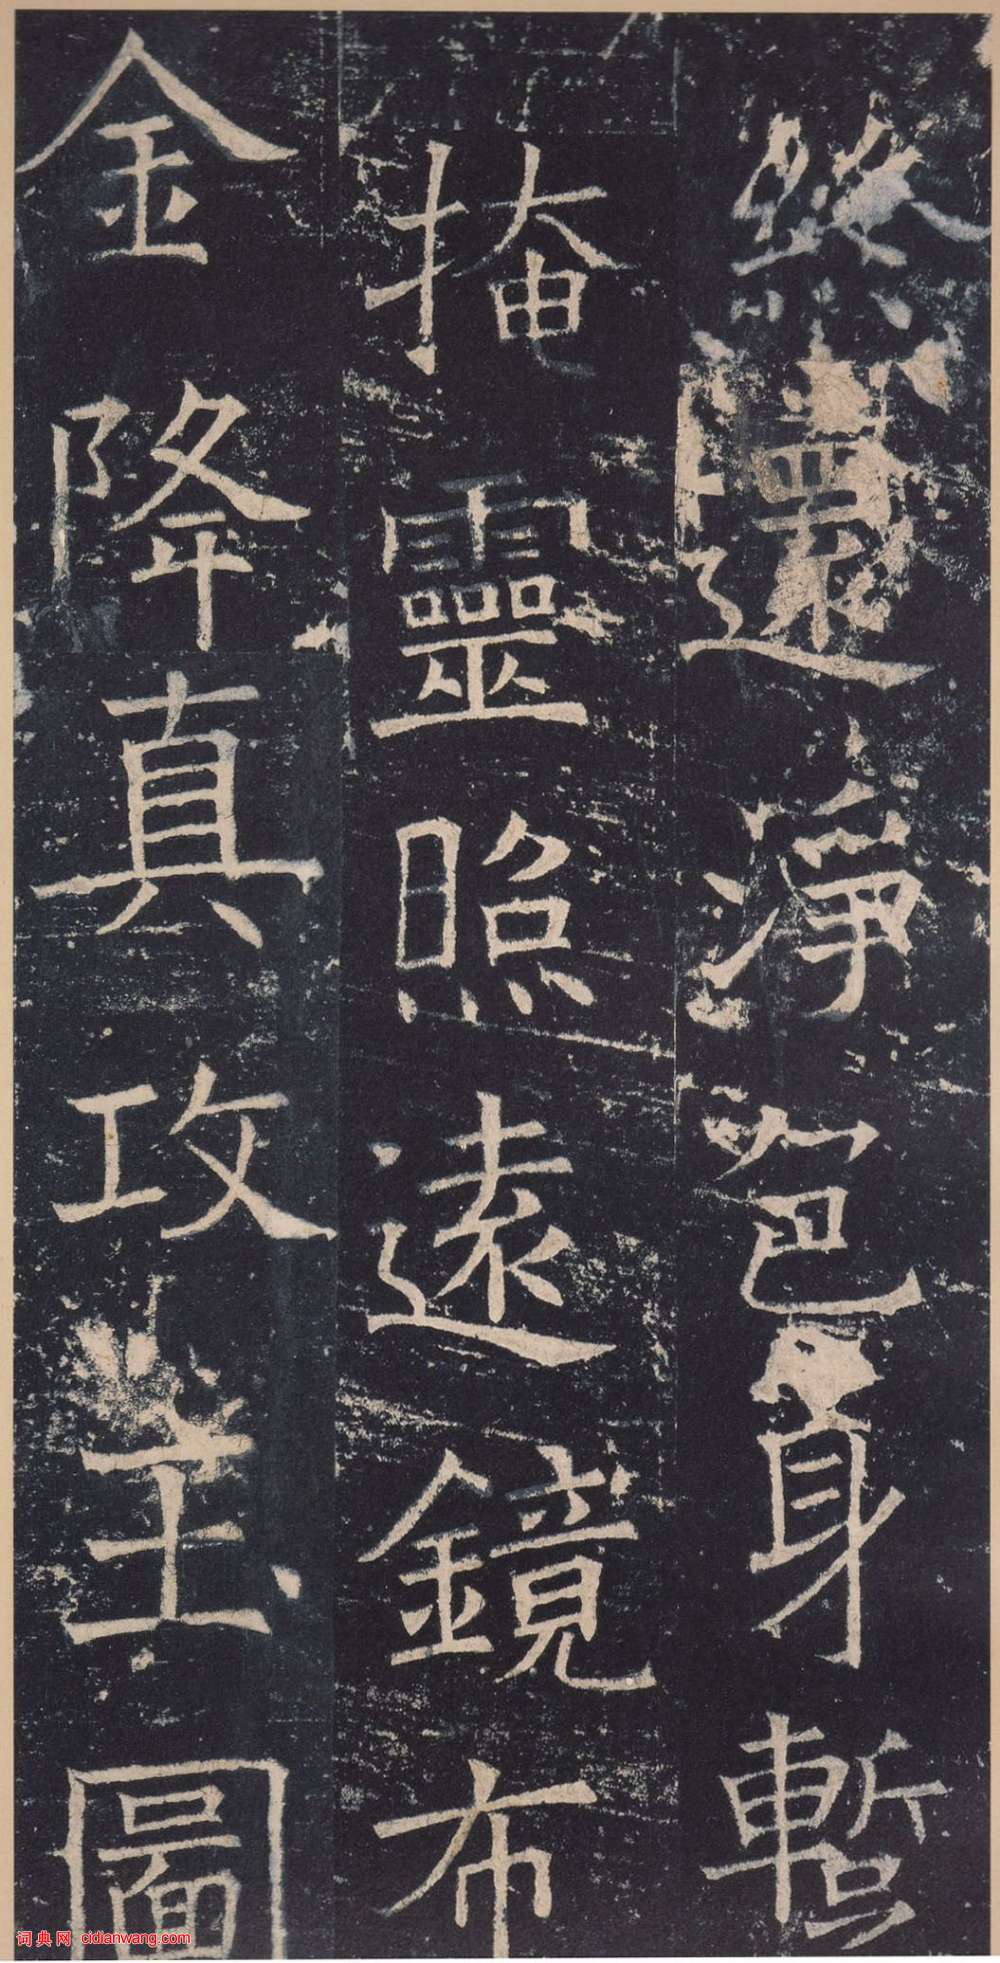 絲還淨色身蹔
掩靈照遠鏡布
金降真攻玉圖
词典网 cidianwang.com